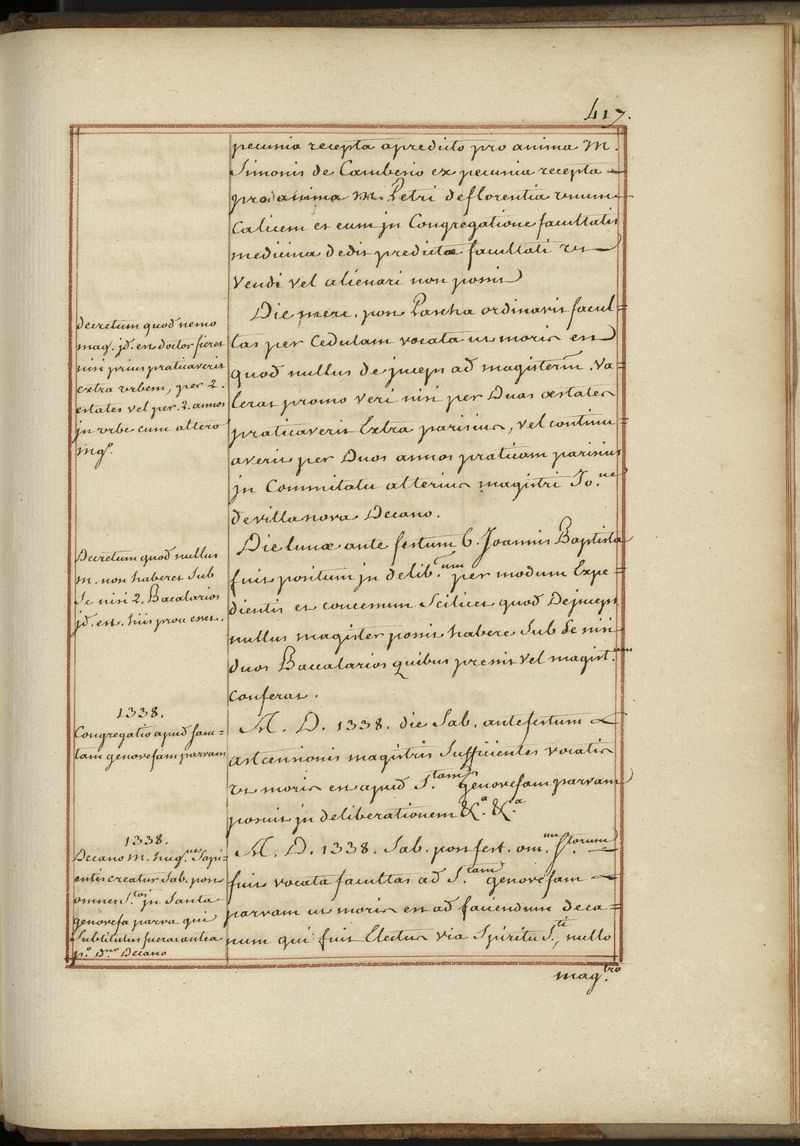 417.
pecunia recepta apredicto pro anima M.
Simonis de Camberio ex pecunia recepta
pro anima M. Petri deflorentia unum
Calicem et eum jn Congregatione facultatis
medicina dedit predictæ facultati ut
Vendi vel alienari non possit
Die mere. post Pascha ordinavit facul=
tas per Cedulam vocata ut moris est
quod nullus de jnceps ad magisterm̄. Va=
lerat promo veri nisi per Duas æstates
praticaverit Extra parisius, vel continu=
averit per Duos annos praticam parisius
jn Commitatu alterius magistri Jo.ne
devillanova Decano.
Die lunæ ante festum b. Joannis Baptista
fuit positum jn delib.num per modum Expe=
dientis et concessum Scilicet quod Dejnceps
nullus magister possit habere Sub Se nisi
duos Baccalarios quibus presit vel magist.um
Conferat.
M. D. 1338. die Sab. antefestum
astcensionis magistris Sufficientes vocatis
ut moris est apud S.tam genovefam parvam
posuit jn deliberationem &.a &.a
M. D. 1338. Sab. post fest. om.um S.torum
fuit vocata facultas ad S.tam genovefam
parvam ut moris est ad faciendum deca=
num qui fuit Electus via Spiritu S.ti, nullo
mag.tro
decretum quod nemo
mag. jd. est doctor fieret
nisi prius praticaverit
extra urbem, per 2.
estates vel per. 2. annos
jn urbe cum altero
mg.o
Decretum quod nullus
m. non haberet Sub
Se nisi 2. Bacalarios
jd. est. hiis pro
1338.
Congregatio apud san=
tam genovefam parvam
1338.
Decano M. hug.ne Sapi=
entis creatur Sab. post
omnes S.tos jn Santa
genovefa parva qui
Substitutus fuerat antea
p.o D.no Decano